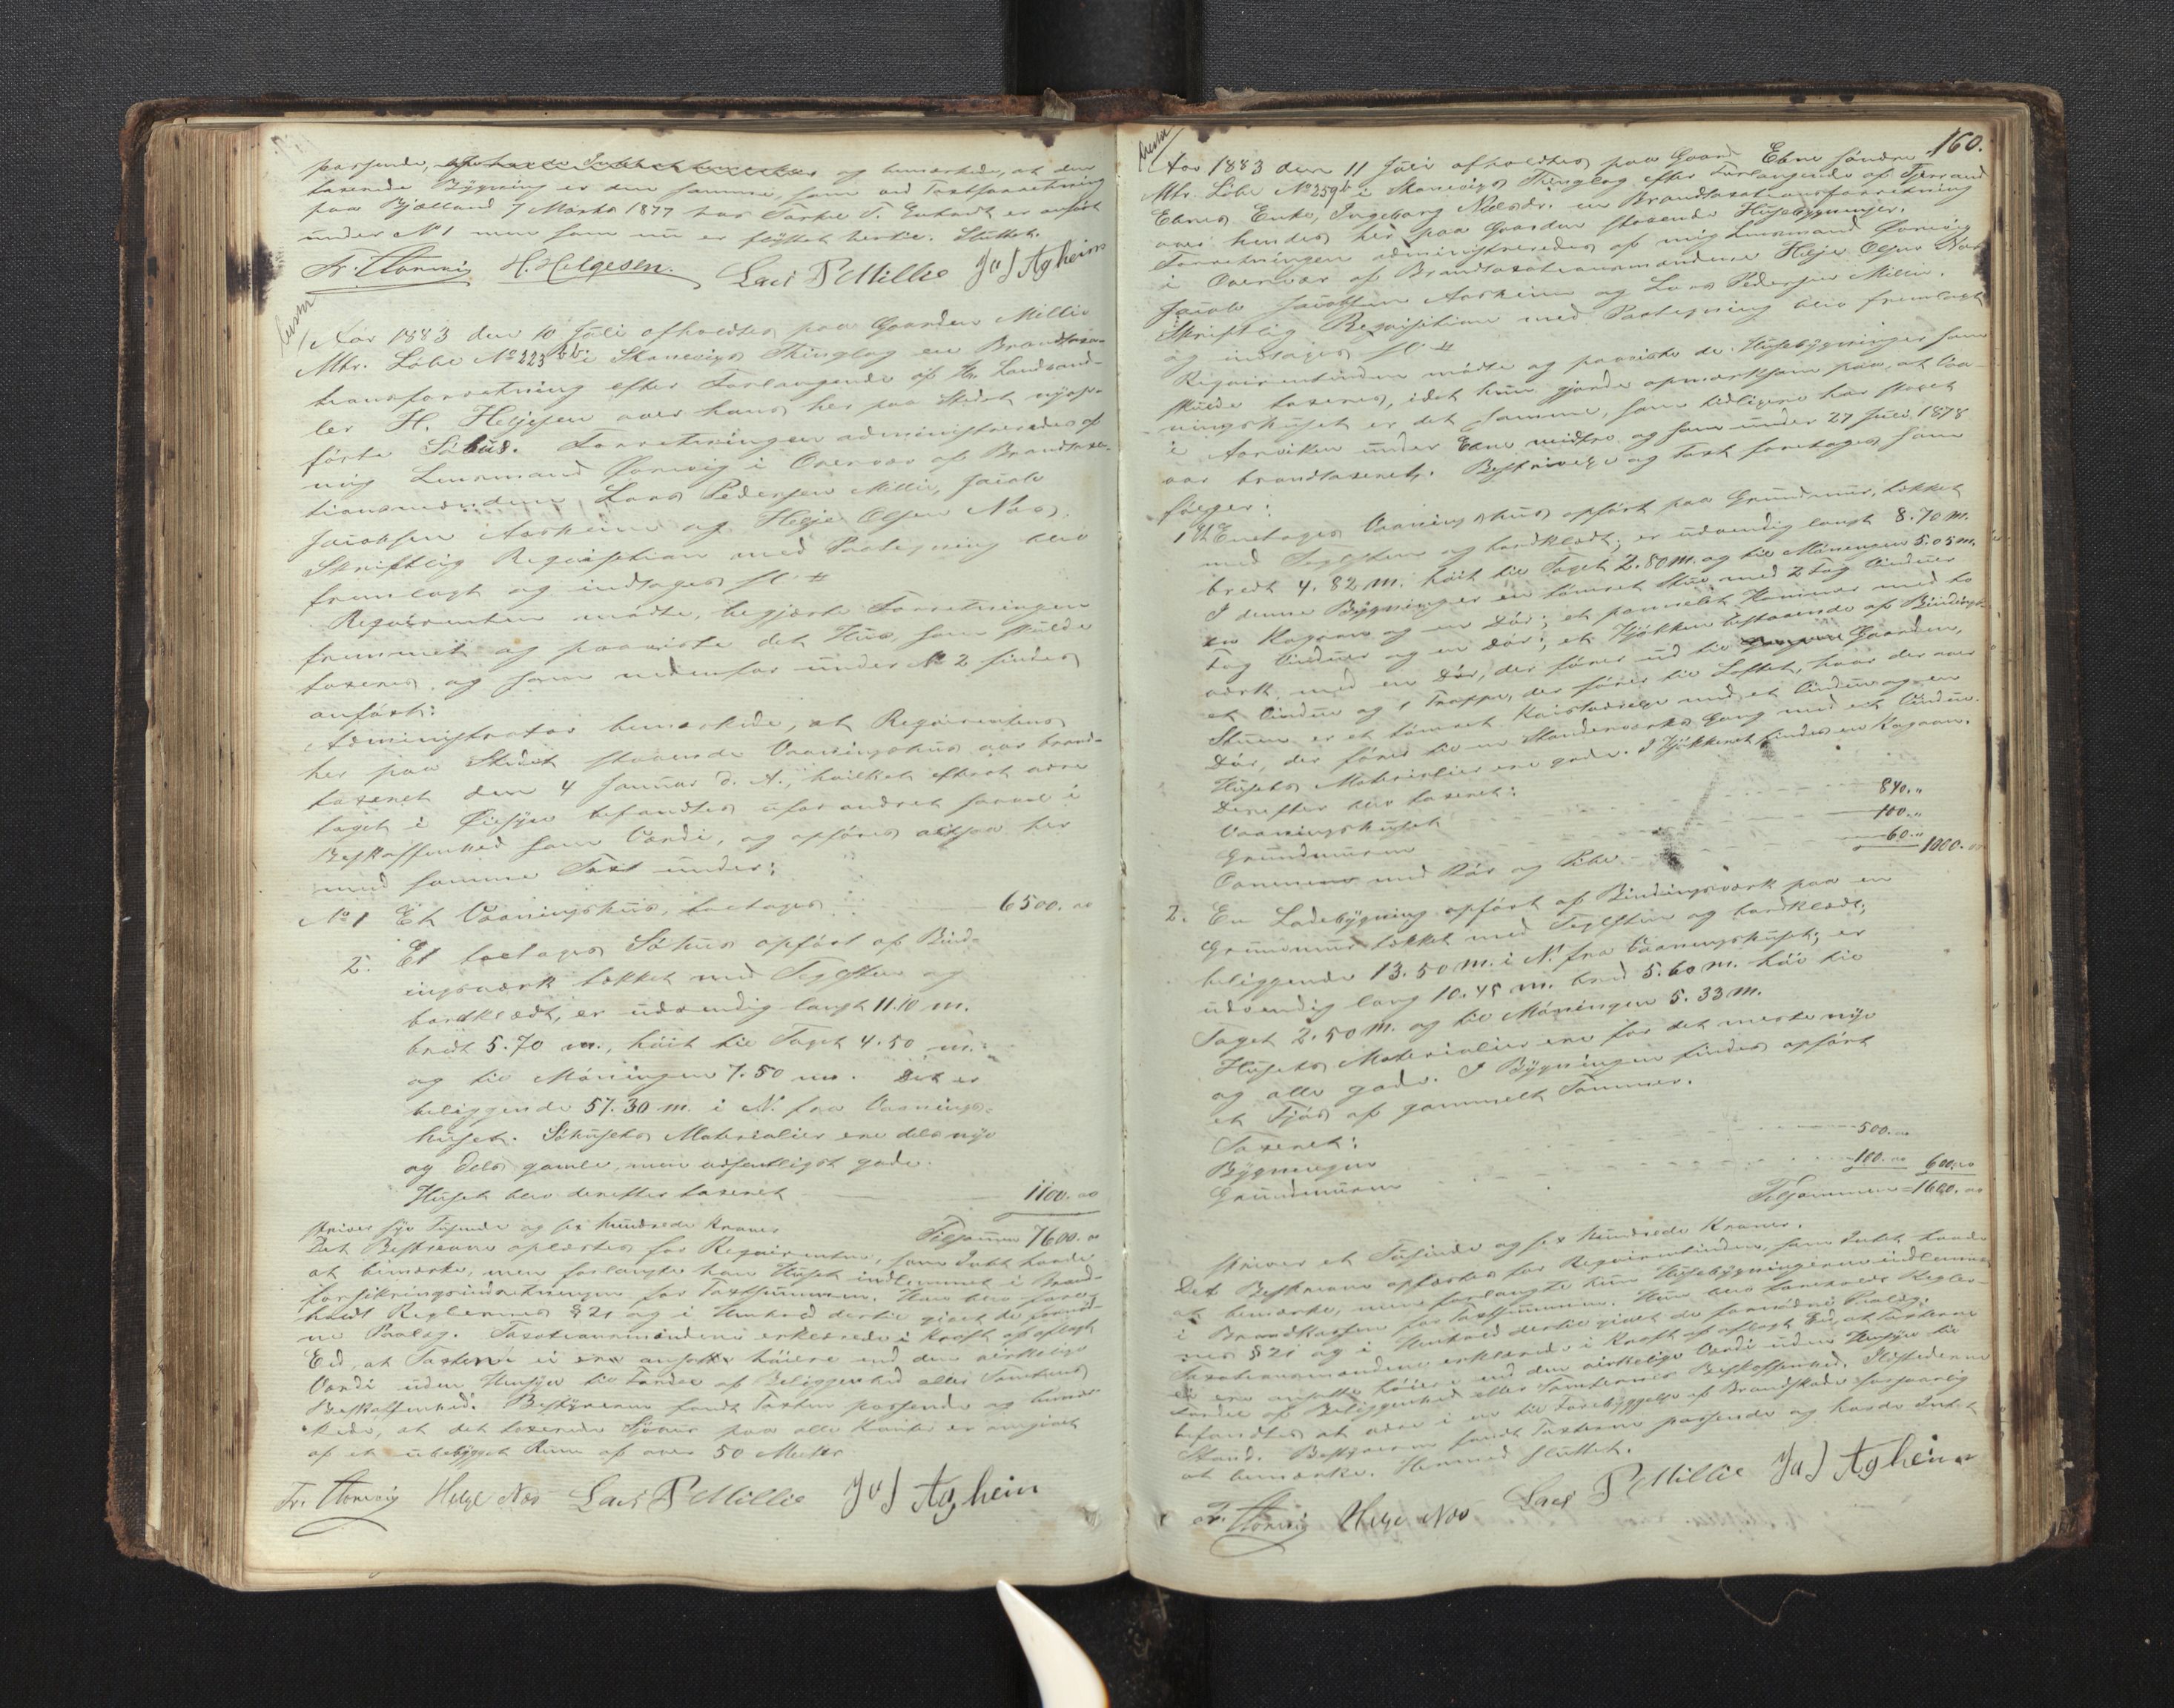 passende, og bemærkede, at den
taxerede Bygning er den samme, som ved Taxtforretning
paa Bjælland 7 Marts 1877 hos Torkel T. er anført
under No 1 men som nu er flyttet hertil. Sluttet.
Fr. Hornvig H. Helgesen. Lars P Millie Ja J Agheim
beskr
Aar 1883 den 10 Juli afholdtes paa Gaarden Millie
Mtr. Løbe No 223 bb i Skonevigs Thinglag en Brandtaxa-
tionsforretning efter Forlangende af Hr. Landhand-
ler H. Helgesen over hans her paa Stedet nyop-
førte Söhus. Forretningen administreredes af
mig Lensmand Hornvig i Overvær af Brandtaxa-
tionsmændene Lars Pedersen Millie, Jacob
Jacobsen Aarheim og Helje Olsen Næs.
Skriftlig Reqvisition med Paategning blev
fremlagt og indtages sl. #
Reqvirenten mødte, begjærte Forretningen
fremmet og paaviste det Hus, som skulde
taxeres, og som nedenfor under No 2 findes
anført:
Administrator bemærkede, at Reqvirentens
her paa Stedet staaende Vaaningshus var brand-
taxeret den 4 Januar d. A., hvilket efter at være
taget i Øiesyn befandtes uforandret saavel i
Beskaffenhed som Værdi, og opføres altsaa her
med samme Taxt under:
No 1 Et Vaaningshus, toetages 6500. 00
2. Et toetages Söhus opført af Bind-
ingsværk tækket med Teglsten og
bordklædt, er udvendig langt 11.10 m.
bredt 5.70 m., höit til Taget 4.50 m.
og til Möningen 7.50 m. Det er
beliggende 57.30 m. i N. fra Vaanings-
huset. Söhusets Materialier ere dels nye
og dels gamle, men væsentligst gode.
Huset blev derefter taxeret 1100. 00
skriver syv Tusinde og sex hundrede Kroner Tilsammen 7600. 00
Det Beskrevne oplæstes for Reqvirenten, som Intet havde
at bemærke, men forlangte han Huset indlemmet i Brand-
forsikringsindretningen for Taxtsummen. Han blev fore-
holdt Reglernes § 21 og i Henhold dertil givet de fornød-
ne Paalæg. Taxationsmændene erklærede i Kraft af aflagt
Eed, at Taxterne ei ere ansatte höiere end den virkelige
Værdi uden Hensyn til Fordel af Beliggenhed eller Tomtens
Beskaffenhed. Bestyreren fandt Taxten passende og bemær-
kede, at det taxerede Söhus paa alle Kanter er omgivet
af et ubebygget Rum af over 50 Meter
Fr. Hornvig Helge Næs Lars P Millie Ja J Agheim
160.
beskr
Aar 1883 den 11 Juli afholdtes paa Gaard Ebne söndre
Mtr. Löbe No 259 b i Skonevigs Thinglag efter Forlangende af Tjerand
Ebnes Enke, Ingeborg Nilsdr. en Brandtaxationsforretning
over hendes her paa Gaarden staaende Husebygninger.
Forretningen administreredes af mig Lensmand Hornvig
i Overvær af Brandtaxationsmændene Helje Olsen Næs
Jacob Jacobsen Aarheim og Lars Pedersen Millie.
Skriftlig Reqvisition med Paategning blev fremlagt
og indtages sl. #
Reqvirentinden mødte og paaviste de Husebygninger som
skulde taxeres, idet hun gjorde opmærksom paa, at Vaa-
ningshuset er det samme, som tidligere har staaet
i Aarviken under Ebne midtre og som under 27 Juli 1878
var brandtaxeret. Beskrivelse og Taxt foretages som
følger:
1. Et Enetages Vaaningshus opført paa Grundmur, tækket
med Teglsten og bordklædt, er udvendig langt 8.70 m.
bredt 4.82 m. höit til Taget 2.80 m. og til Möningen 5.05 m.
I denne Bygning er en tømret Stue med 2 Fag Vinduer
en Kagovn og en Dör; et panelet Kammer med to
Fag Vinduer og en Dör; et Kjökken bestaaende af Bindings-
værk med en Dör, der förer ud til Gaarden,
et Vindu og 1 Trappe, der förer til Loftet, hvor der over
Stuen er et tømret Kvistværelse med et Vindu og en
Dör, der förer til en Standerværks Gang med et Vindu.
Husets Materialier ere gode. I Kjökkenet findes en Kagovn.
Derefter blev taxeret:
Vaaningshuset 840.,,
Grundmuren 100.,,
Ovnene med Rör og Pibe 60.,, 1000. 00
2. En Ladebygning opført af Bindingsværk paa en
Grundmur tækket med Teglsten og bordklædt;
beliggende 13.50 m. i N. fra Vaaningshuset; er
udvendig lang 10.45 m. bred 5.60 m. höi til
Taget 2.50 m. og til Möningen 5.33 m.
Husets Materialier ere for det meste nye
og alle gode. I Bygningen findes opført
et Fjös af gammelt Tømmer.
Taxeret:
Bygningen 500. 00
Grundmuren 100. 00 600. 00
Tilsammen 1600. 00
skriver et Tusinde og sex Hundrede Kroner.
Det Beskrevne oplæstes for Reqvirentinden, som Intet havde
at bemærke, men forlangte hun Husebygningerne indlemmet
i Brandkassen for Taxtsummen. Hun blev foreholdt Regler-
nes § 21 og i Henhold dertil givet de fornødne Paalæg.
Taxationsmændene erklærede i Kraft af aflagt Eed, at Taxterne
ei ere ansatte höiere end den virkelige Værdi uden Hensyn til
Fordel af Beliggenhed eller Tomternes Beskaffenhed. Ildstederne
befandtes at være i en til Forebyggelse af Brandskade forsvarlig
Stand. Bestyreren fandt Taxterne passende og havde Intet
at bemærke. Hermed sluttet.
Fr. Hornvig Helge Næs Lars P Millie Ja J Agheim